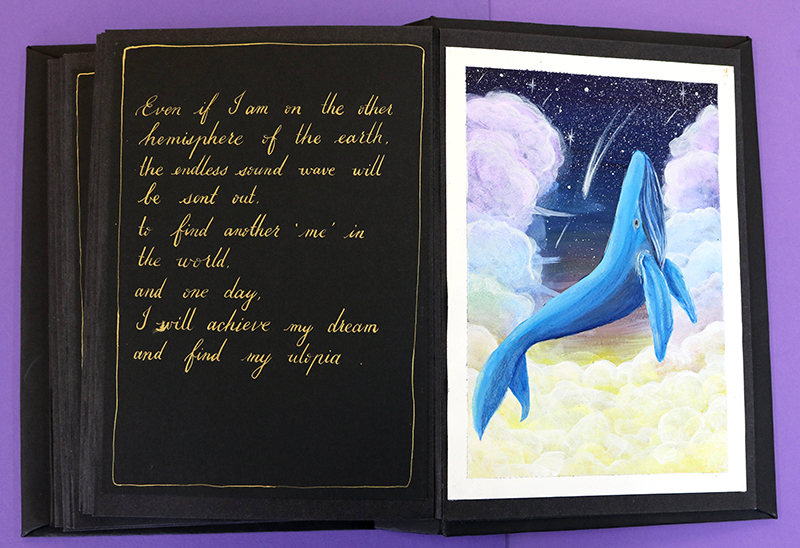 Even if I am on the other
hemisphere of the earth.
the endless sound wave will
be sent out.
to find another 'me' in
the world.
and one day,
I will achieve my dream
and find my utopia .